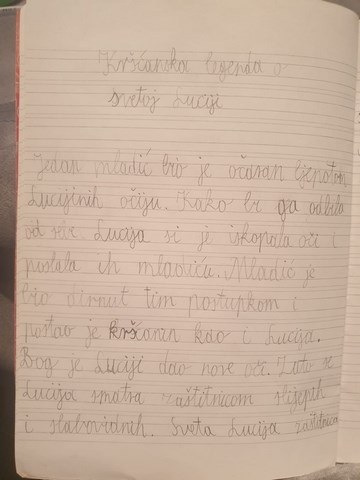 Kršćanska legenda o
svetoj Luciji
Jedan mladić bio je očaran ljepotom
Lucijinih očiju. Kako bi ga odbila
od sebe Lucija si je iskopala oči i
poslala ih mladiću. Mladić je
bio dirnut tim postupkom i
postao je kršćanin kao i Lucija.
Bog je Luciji dao nove oči. Zato se
Lucija smatra zaštitnicom slijepih
i slabovidnih. Sveta Lucija zaštitnica